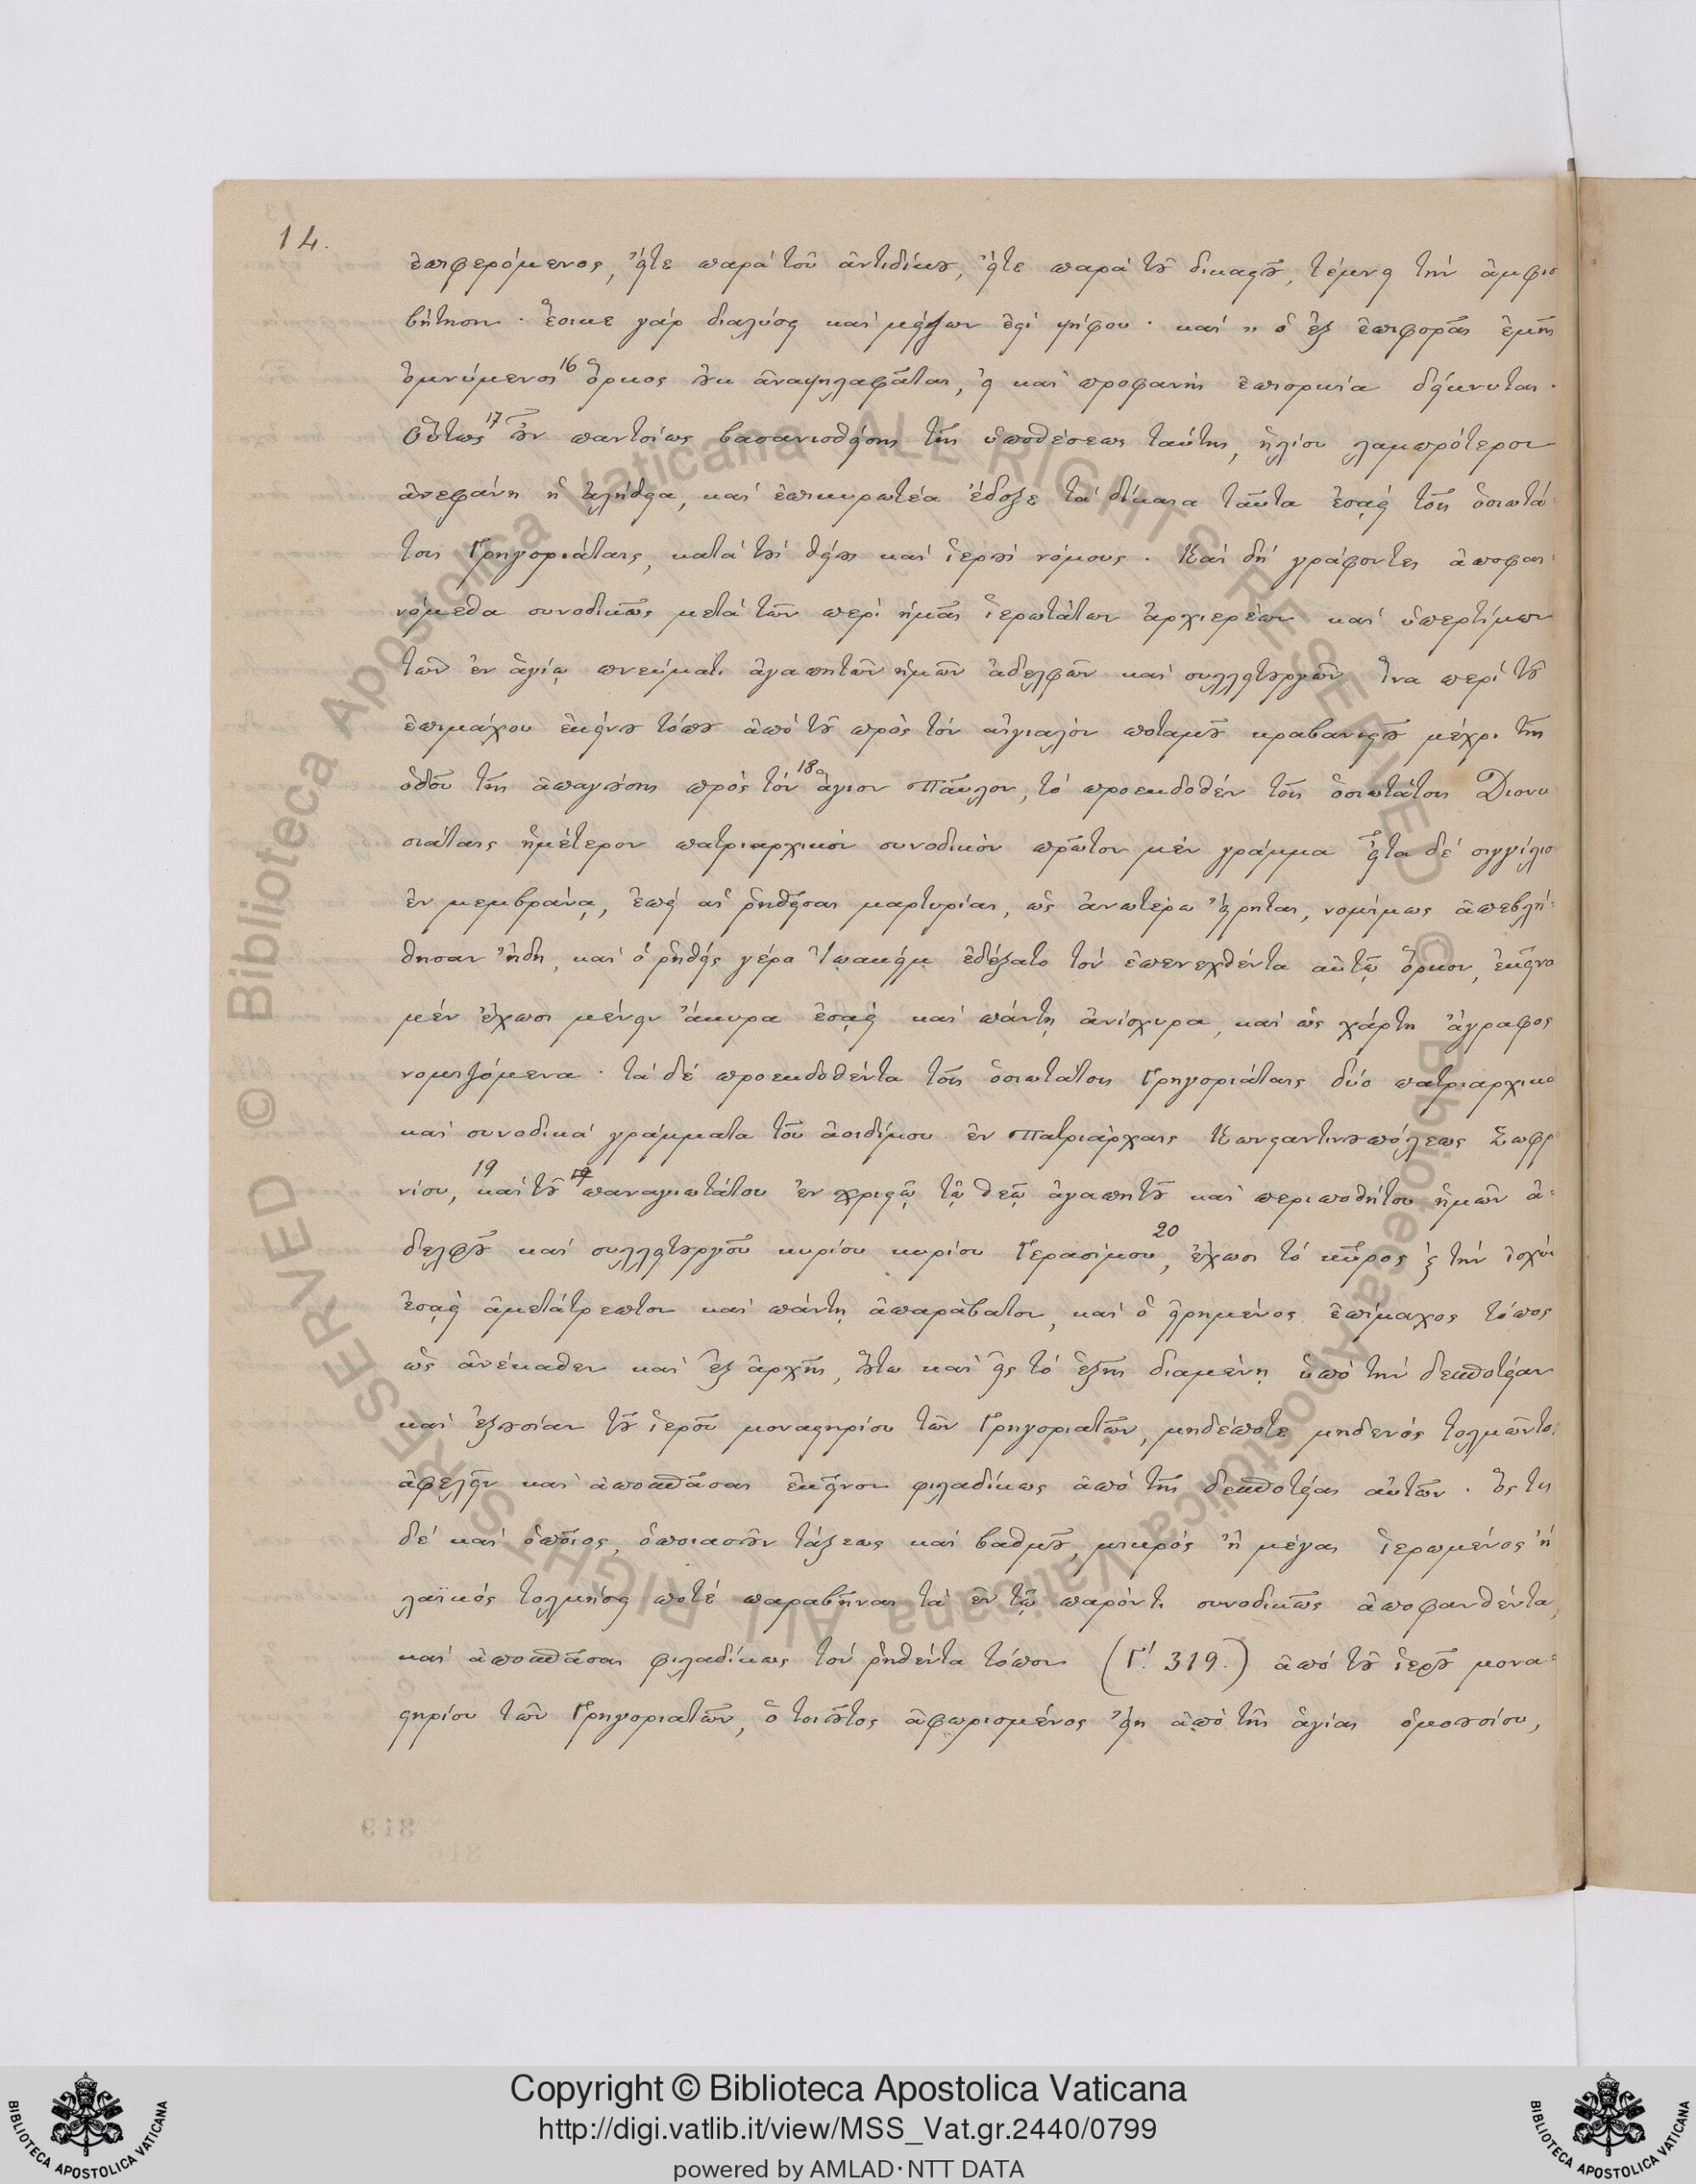 14.
ἐπιφερόμενος, εἴτε παρὰ τοῦ ἀντιδίκου, εἴτε παρὰ τοῦ δικαστοῦ, τέμνει τὴν ἀμφισ
βήτησιν · ἔοικε γάρ διαλύσει καί μείζων ἐστί ψήφου · καί „ ὁ ἐξ ἐπιφορᾶς ἐμῆς
ὀμνύμενος 16 ὅρκος οὐκ ἀναψηλαφᾶται, εἰ καί προφανής ἐπιορκία δείκνυται.
Οὕτως 17 οὖν παντοίως βασανισθείσης τῆς ὑποθέσεως ταύτης, ἡλίου λαμπρότερον
ἀνεφάνη ἡ ἀλήθεια, καί ἐπικυρωτέα ἔδοξε τά δίκαια ταῦτα ἐσαεί τοῖς ὁσιωτά
τοις Γρηγοριάταις, κατά τούς θείους καί ἱερούς νόμους. Καί δή γράφοντες ἀποφαι:
νόμεθα συνοδικῶς μετά τῶν περί ἡμᾶς ἱερωτάτων ἀρχιερέων καί ὑπερτίμων
τῶν ἐν ἁγίῳ πνεύματι ἀγαπητῶν ἡμῶν ἀδελφῶν καί συλλειτουργῶν ἵνα περί τοῦ
ἐπιμάχου ἐκείνου τόπου ἀπό τοῦ πρὸς τόν αἰγιαλόν ποταμοῦ κραβανιστοῦ μέχρι τῆς
ὁδοῦ τῆς ἀπαγούσης πρός τόν 18 ἅγιον Παῦλον, τό προεκδοθέν τοῖς ὁσιωτάτοις Διονυ
σιάταις ἡμέτερον πατριαρχικόν συνοδικόν πρῶτον μέν γράμμα εἶτα δέ σιγγίλιο
ἐν μεμβράναις, ἐπεί αἱ ῥηθεῖσαι μαρτυρίαι, ὡς ἀνωτέρω εἴρηται, νομίμως ἀπεβλή:
θησαν ἤδη, καί ὁ ῥηθείς γέρο Ἰωακείμ ἐδέξατο τόν ἐπενεχθέντα αὐτῷ ὅρκον, ἐκεῖνα
μέν ἔχωσι μένειν ἄκυρα ἐσαεί καί πάντῃ ἀνίσχυρα, καί ὡς χάρτης ἄγραφος
νομιζόμενα · τά δέ προεκδοθέντα τοῖς ὁσιωτάτοις Γρηγοριάταις δύο πατριαρχικα
καί συνοδικά γράμματα τοῦ ἀοιδίμου ἐν Πατριάρχαις Κωνσταντινουπόλεως Σωφρ
νίου, 19 καί τοῦ παναγιωτάτου ἐν χριστῷ τῷ θεῷ ἀγαπητοῦ καί περιποθήτου ἡμῶν ἀ:
δελφοῦ καί συλλειτουργοῦ κυρίου κυρίου Γερασίμου 20, ἔχωσι τό κῦρος ϗ τήν ἰσχύν
ἐσαεί ἀμετάτρεπτον καί πάντῃ ἀπαράβατον, καί ὁ εἰρημένος ἐπίμαχος τόπος
ὡς ἀνέκαθεν καί ἐξ ἀρχῆς, οὕτω καί εἰς τό ἑξῆς διαμένῃ ὑπό τήν δεσποτείαν
καί ἐξουσίαν τοῦ ἱεροῦ μοναστηρίου τῶν Γρηγοριατῶν, μηδέποτε μηδενός τολμῶντο
ἀφελεῖν καί ἀποσπᾶσαι ἐκεῖνον φιλαδίκως ἀπό τῆς δεσποτείας αὐτῶν. Ὅςτις
δέ καί ὁποῖος, ὁποιασοῦν τάξεως καί βαθμοῦ, μικρός ἤ μέγας ἱερωμένος ἤ
λαϊκός τολμήσει ποτέ παραβῆναι τὰ ἐν τῷ παρόντι συνοδικῶς ἀποφανθέντα,
καί ἀποσπᾶσαι φιλαδίκως τόν ῥηθέντα τόπον (Γ! 319.) ἀπό τοῦ ἱεροῦ μονα:
στηρίου τῶν Γρηγοριατῶν, ὁ τοιοῦτος ἀφωρισμένος εἴη ἀπό τῆς ἁγίας ὁμοουσίου,
Copyright © Biblioteca Apostolica Vaticana
http://digi.vatlib.it/view/MSS_Vat.gr.2440/0799
powered by AMLAD·NTT DATA